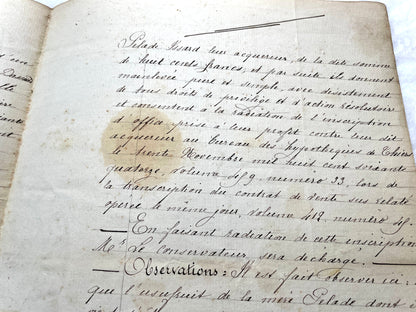 Pelade Issard leur acquereur de la dite somme
de huit cents francs, et par suite ils donnent
mainlevée pure et simple, avec désistement
de tous droits de privilège et d'action résolutoire
et consentent à la radiation de l'inscription
d'office prise à leur profit contre leur dit
acquereur au bureau des hypothèques de Thiers
le trente Novembre mil huit cent soixante
quatorze, volume 489 numéro 33, lors de
la transcription du contrat de vente sus relaté
opérée le même jour volume 412, numéro 45.
En faisant radiation de cette inscription
Mr Le conservateur sera déchargé.
Observations: Il est fait observer ici
que l'usufruit de la mère Pelade dont i